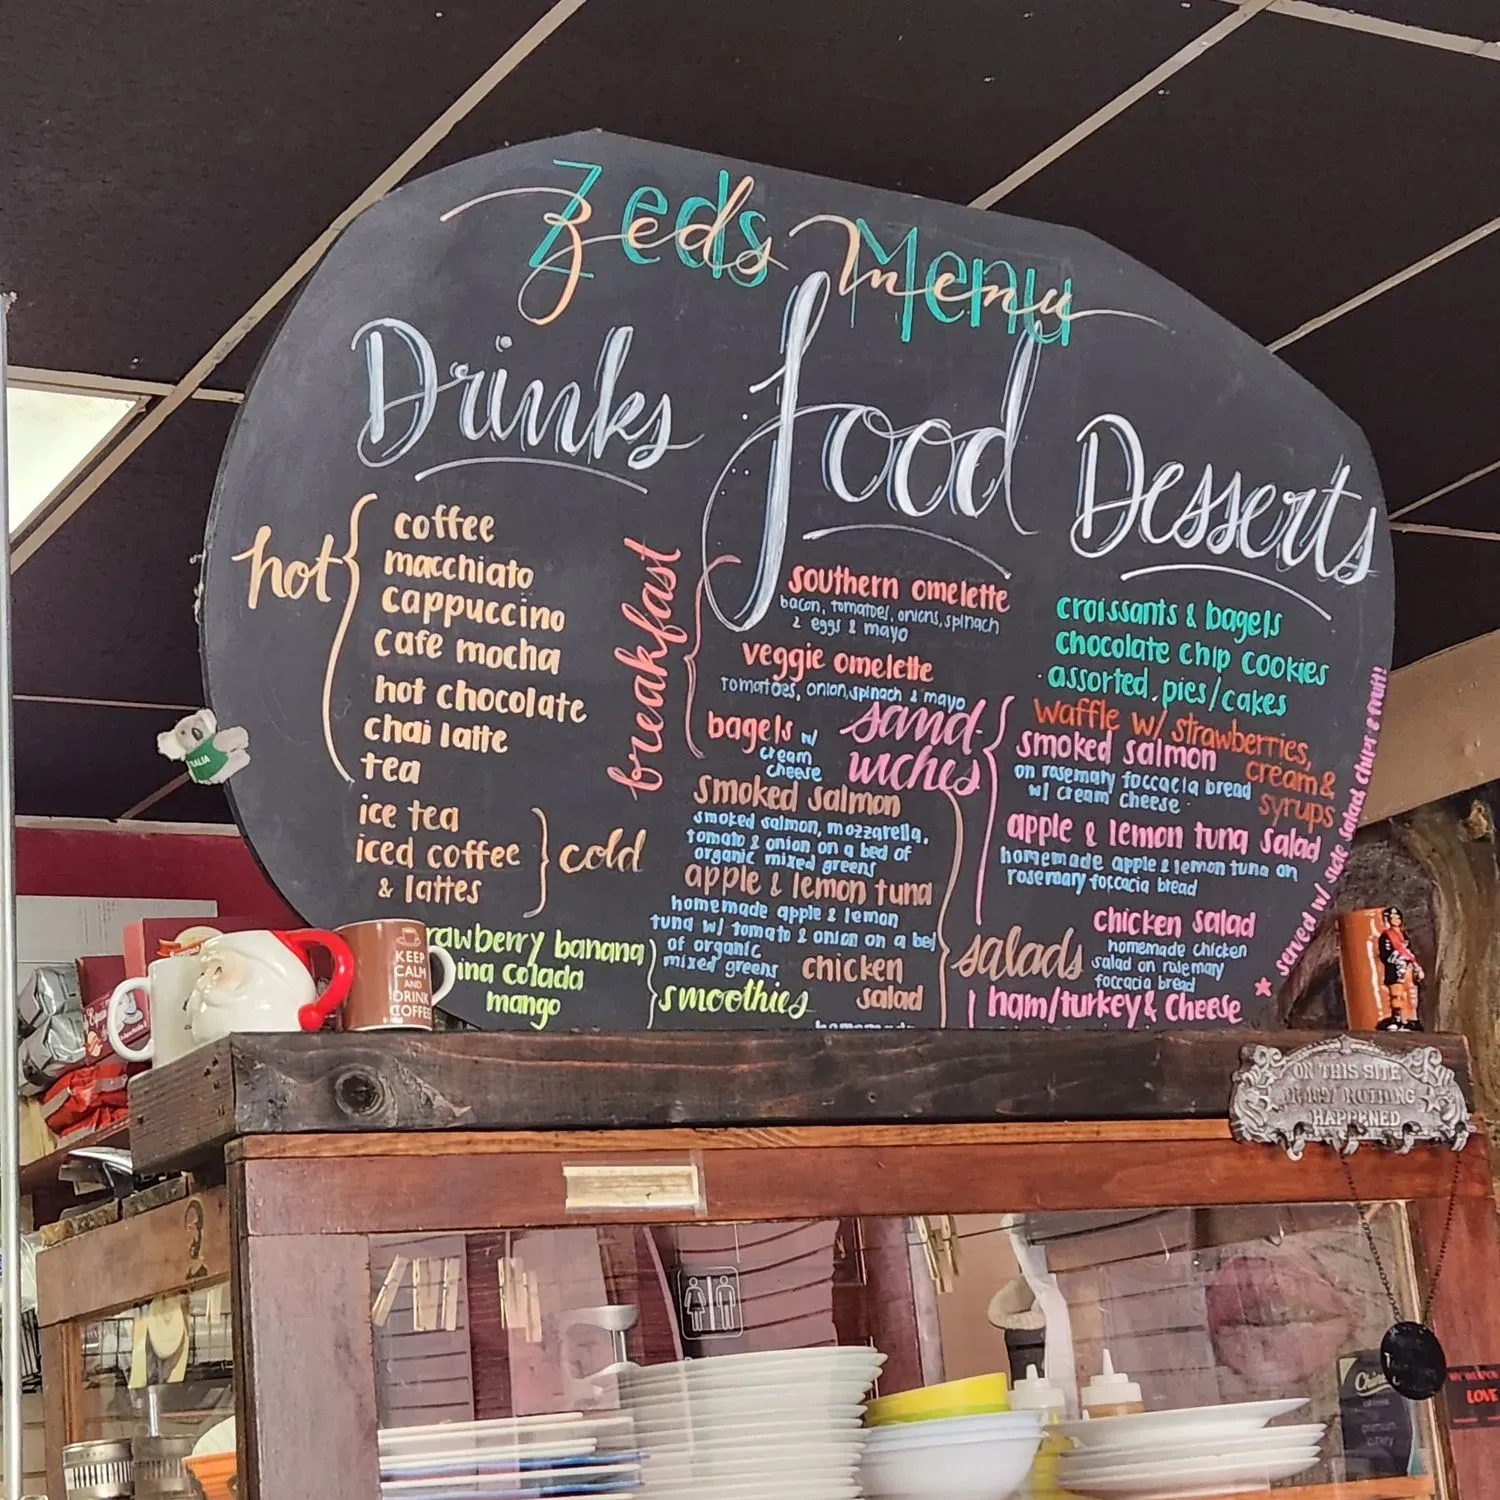 Zeds Menu
Drinks
hot
coffee
macchiato
cappuccino
cafe mocha
hot chocolate
chai latte
tea
ice tea
iced coffee
& lattes
cold
rawberry banana
ina colada
mango
smoothies
food
breakfast
southern omelette
bacon, tomatoes, onions, spinach
2 eggs & mayo
veggie omelette
tomatoes, onion, spinach & mayo
bagels w/
cream
cheese
smoked salmon
smoked salmon, mozzarella,
tomato & onion on a bed of
organic mixed greens
apple & lemon tuna
homemade apple & lemon
tuna w/ tomato & onion on a bed
of organic
mixed greens
chicken
salad
homemade
salads
sand-
wiches
smoked salmon
on rosemary foccacia bread
w/ cream cheese
apple & lemon tuna salad
homemade apple & lemon tuna on
rosemary foccacia bread
chicken salad
homemade chicken
salad on rosemary
foccacia bread
ham/turkey & cheese
Desserts
croissants & bagels
chocolate chip cookies
assorted pies/cakes
waffle w/ strawberries,
cream &
syrups
served w/ side salad, chips & fruit!
ALIA
KEEP
CALM
AND
DRINK
COFFEE
ON THIS SITE
NOTHING
HAPPENED
LOVE